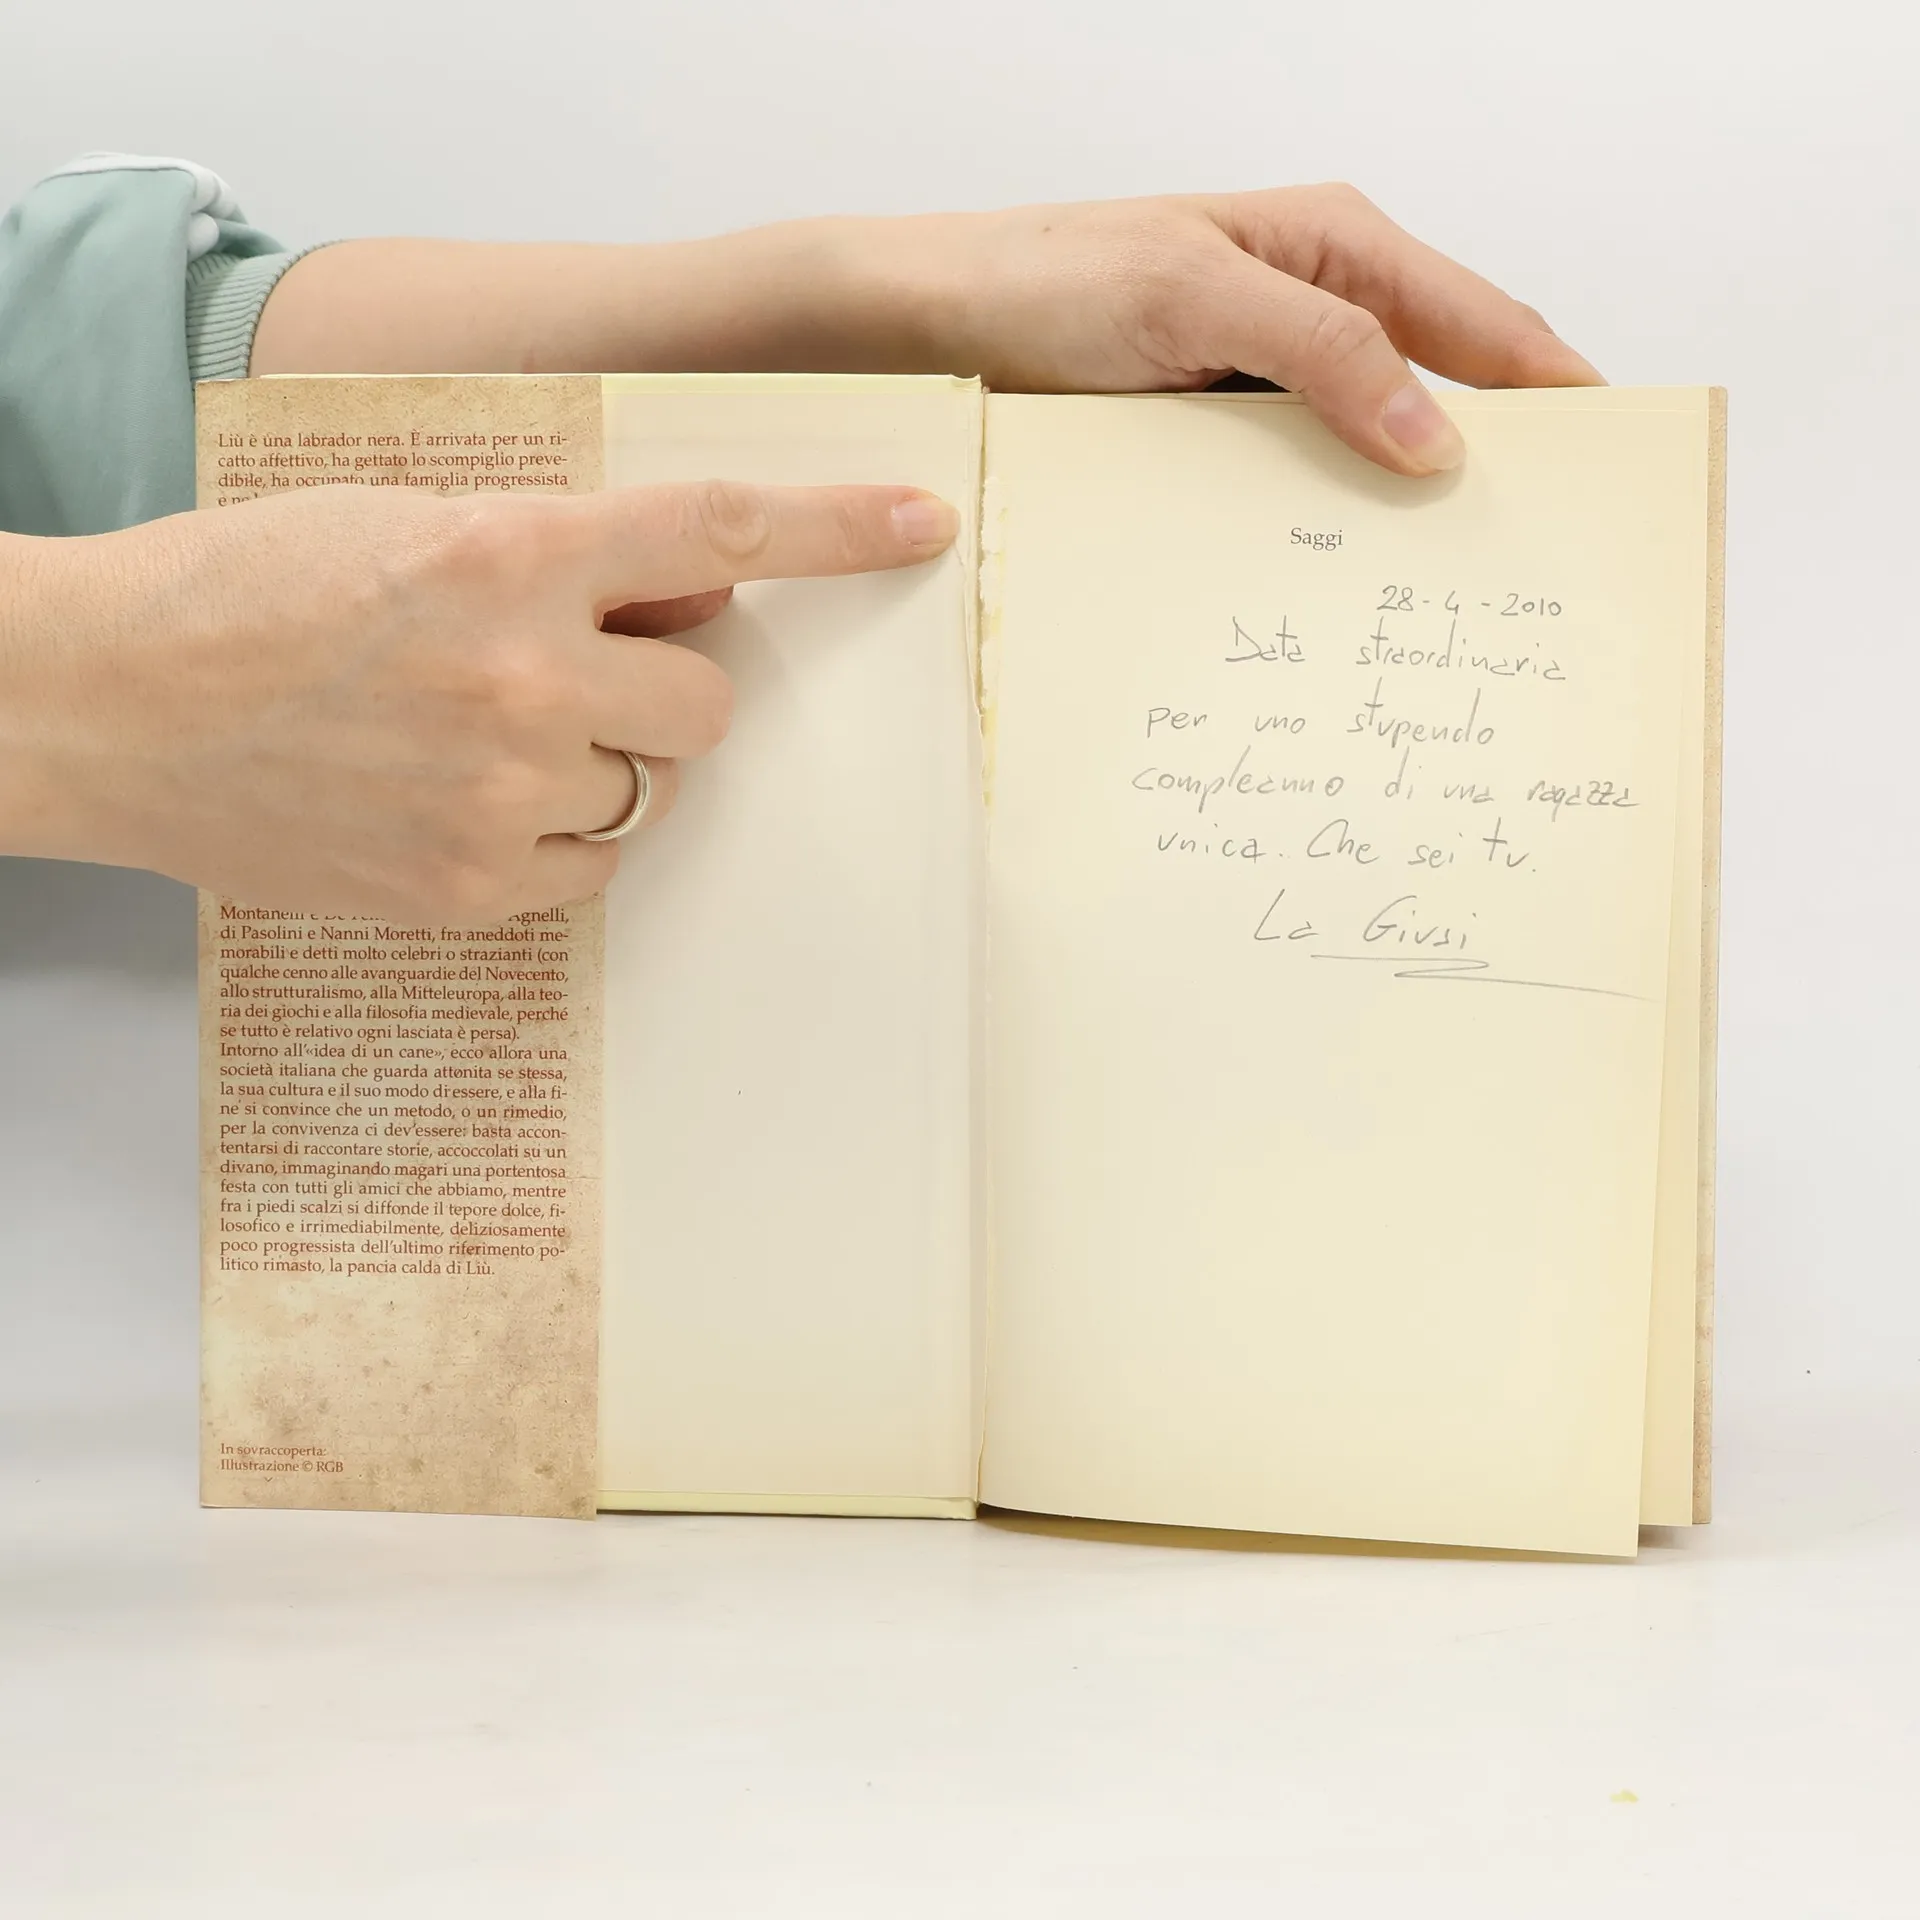 Liù è una labrador nera. È arrivata per un ri-
catto affettivo, ha gettato lo scompiglio preve-
dibile, ha occupato una famiglia progressista
Agnelli,
di Pasolini e Nanni Moretti, fra aneddoti me-
morabili e detti molto celebri o strazianti (con
qualche cenno alle avanguardie del Novecento,
allo strutturalismo, alla Mitteleuropa, alla teo-
ria dei giochi e alla filosofia medievale, perché
se tutto è relativo ogni lasciata è persa).
Intorno all'«idea di un cane», ecco allora una
società italiana che guarda attonita se stessa,
la sua cultura e il suo modo di essere, e alla fi-
ne si convince che un metodo, o un rimedio,
per la convivenza ci dev'essere: basta accon-
tentarsi di raccontare storie, accoccolati su un
divano, immaginando magari una portentosa
festa con tutti gli amici che abbiamo, mentre
fra i piedi scalzi si diffonde il tepore dolce, fi-
losofico e irrimediabilmente, deliziosamente
poco progressista dell'ultimo riferimento po-
litico rimasto, la pancia calda di Liù.
In sovraccoperta:
Illustrazione © RGB
Saggi
28-4-2010
Data straordinaria
per uno stupendo
compleanno di una ragazza
unica. Che sei tu.
La Giusi